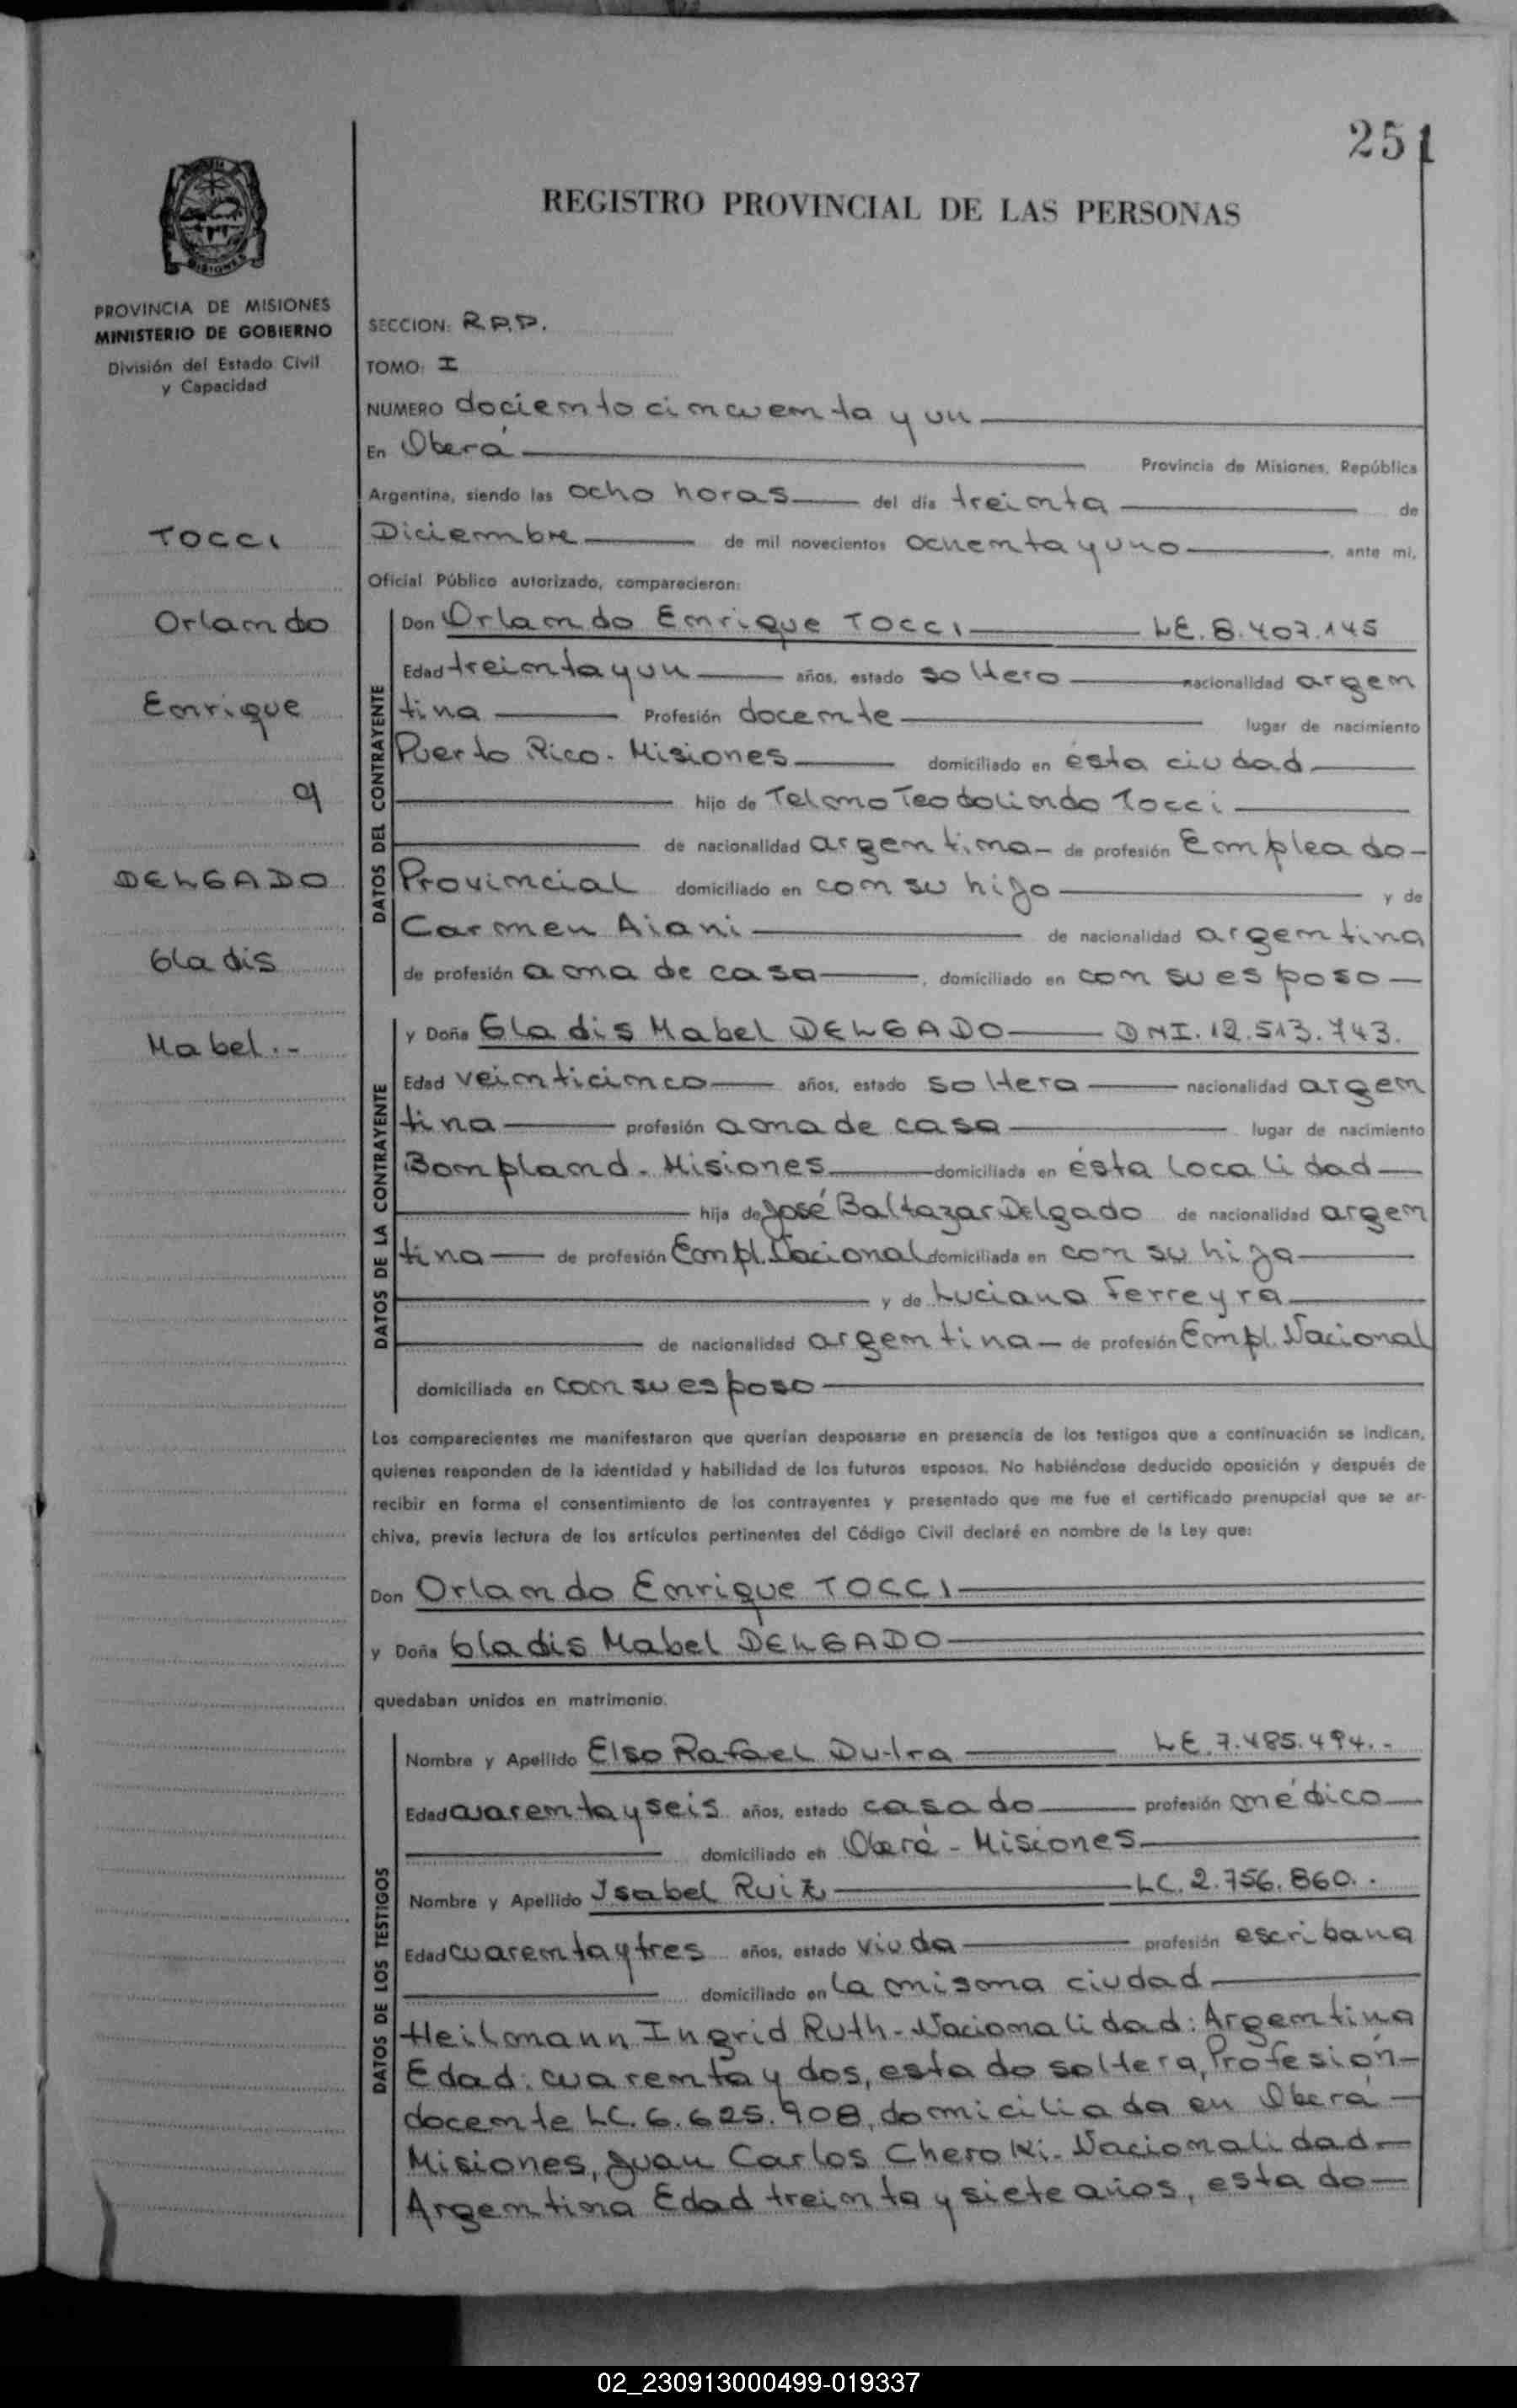 251
REGISTRO PROVINCIAL DE LAS PERSONAS
MISIONES
PROVINCIA DE MISIONES
MINISTERIO DE GOBIERNO
División del Estado Civil
y Capacidad
SECCION: R.P.P.
TOMO: I
NUMERO dociento cincuenta y un
En Oberá Provincia de Misiones, República
Argentina, siendo las ocho horas del día treinta de
Diciembre de mil novecientos ochenta y uno, ante mi,
Oficial Público autorizado, comparecieron:
TOCCI
Orlando
Enrique
q
DELGADO
Gladis
Mabel.-
DATOS DEL CONTRAYENTE
Don Orlando Enrique TOCCI LE. 8.407.145
Edad treinta y un años, estado soltero nacionalidad argen
tina Profesión docente lugar de nacimiento
Puerto Rico. Misiones domiciliado en ésta ciudad
hijo de Telmo Teodolindo Tocci
de nacionalidad argentina- de profesión Empleado-
Provincial domiciliado en con su hijo y de
Carmen Aiani de nacionalidad argentina
de profesión ama de casa, domiciliado en con su esposo
DATOS DE LA CONTRAYENTE
y Doña Gladis Mabel DELGADO DNI. 12.513.743.
Edad veinticinco años, estado soltera nacionalidad argen
tina profesión ama de casa lugar de nacimiento
Bompland - Misiones domiciliada en ésta localidad
hija de José Baltazar Delgado de nacionalidad argen
tina de profesión Empl. Nacional domiciliada en con su hija
y de Luciana Ferreyra
de nacionalidad argentina - de profesión Empl. Nacional
domiciliada en con su esposo
Los comparecientes me manifestaron que querían desposarse en presencia de los testigos que a continuación se indican,
quienes responden de la identidad y habilidad de los futuros esposos. No habiéndose deducido oposición y después de
recibir en forma el consentimiento de los contrayentes y presentado que me fue el certificado prenupcial que se ar-
chiva, previa lectura de los artículos pertinentes del Código Civil declaré en nombre de la Ley que:
Don Orlando Enrique TOCCI
y Doña Gladis Mabel DELGADO
quedaban unidos en matrimonio.
DATOS DE LOS TESTIGOS
Nombre y Apellido Elso Rafael Dutra LE. 7.485.494.-
Edad cuarenta y seis años, estado casado profesión médico
domiciliado en Oberá - Misiones
Nombre y Apellido Isabel Ruiz LC. 2.756.860.
Edad cuarenta y tres años, estado viuda profesión escribana
domiciliado en la misma ciudad
Heilmann Ingrid Ruth - Nacionalidad: Argentina
Edad: cuarenta y dos, estado soltera, Profesión-
docente LC. 6.625.908, domiciliada en Oberá -
Misiones, Juan Carlos Cheroki. Nacionalidad-
Argentina Edad treinta y siete años, estado-
02_230913000499-019337